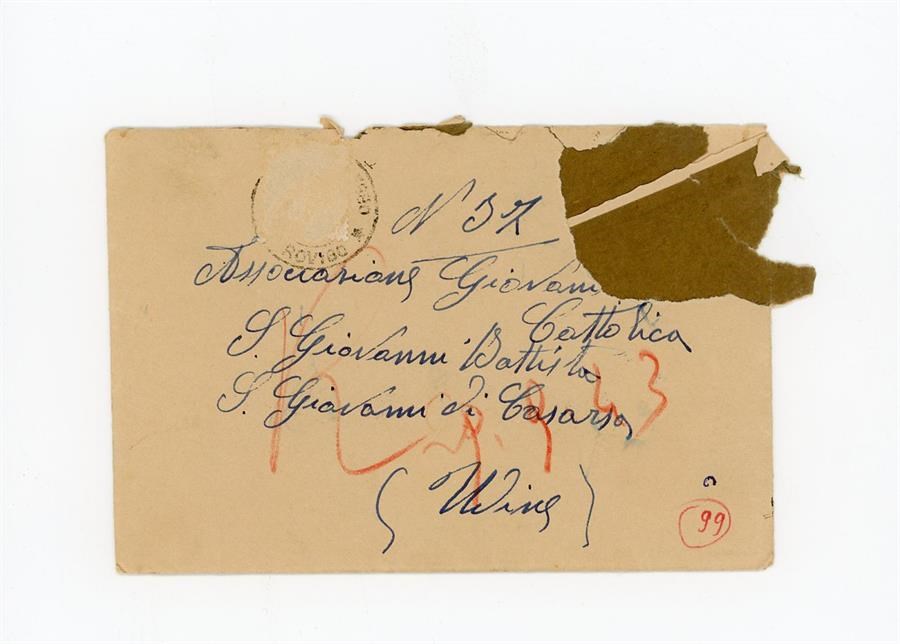 ROVIGO
N 37
Associazione Giovani
Cattolica
S. Giovanni Battista
S. Giovanni di Casarsa
R 9.9.43
(Udine)
99